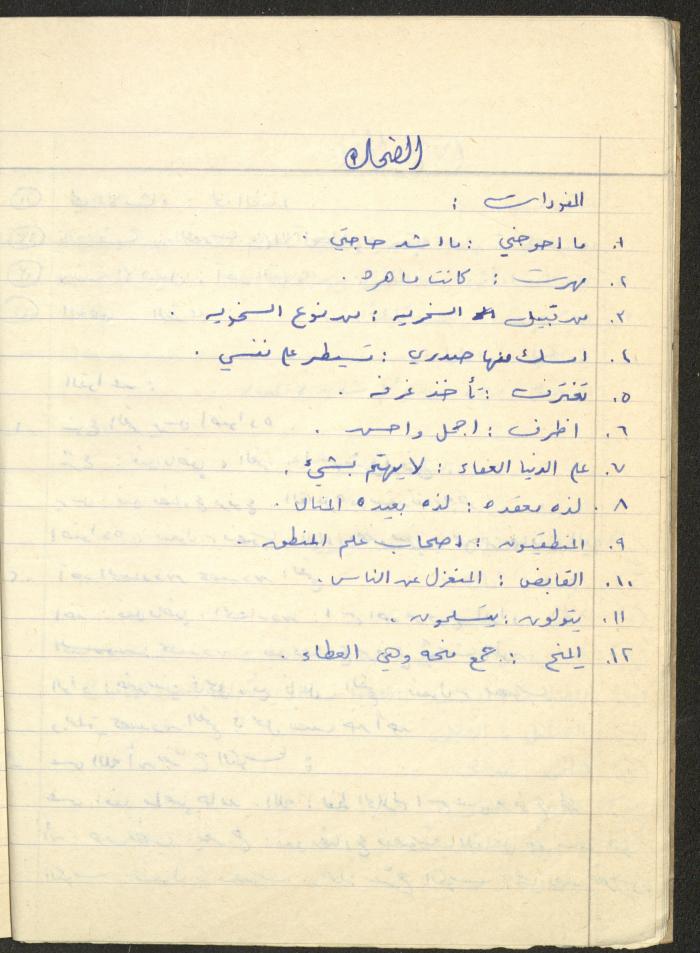 الضحك
المفردات :
١. ما احوجني : ما اشد حاجتي .
٢. مهرت : كانت ماهره .
٣. من قبيل السخريه : من نوع السخريه .
٤. املك منها صدري : تسيطر على نفسي .
٥. تغترف : تأخذ غرفه .
٦. اظرف : اجمل واحسن .
٧. على الدنيا العفاء : لا يهتم بشيء .
٨. لذه معقده : لذه بعيده المنال .
٩. المنطقيون : اصحاب علم المنطق .
١٠. القابض : المنعزل عن الناس .
١١. يتولون : يستلمون .
١٢. المنح : جمع منحه وهي العطاء .